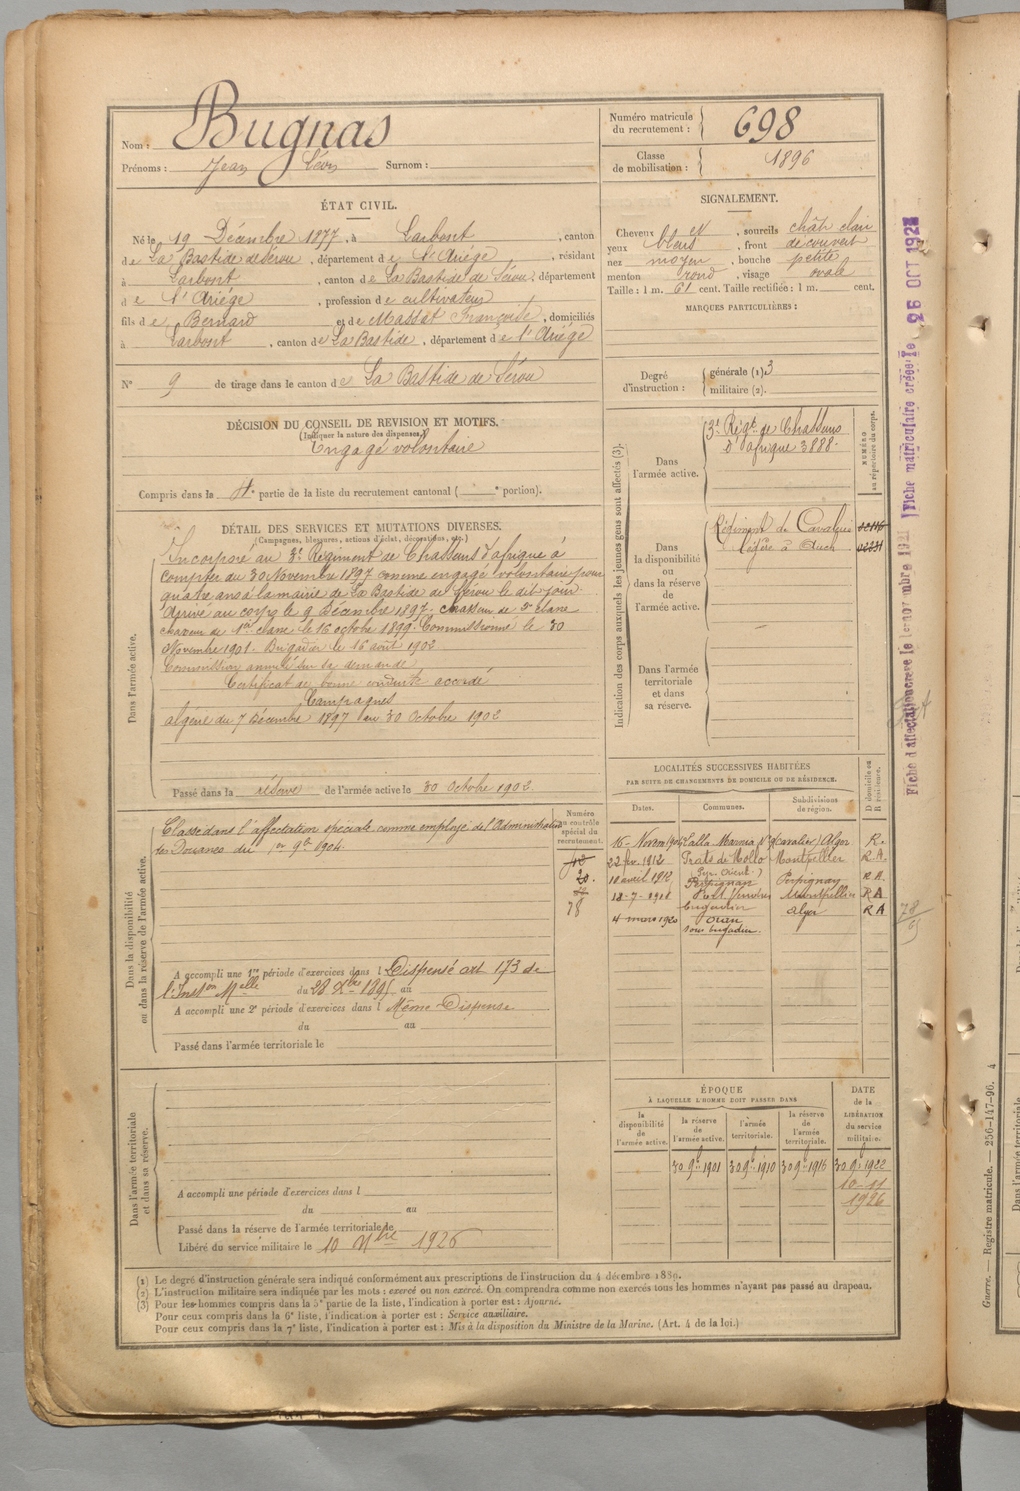 Nom : Bugnas
Prénoms : Jean Léon Surnom :
Numéro matricule du recrutement : 698
Classe de mobilisation : 1896
ÉTAT CIVIL.
Né le 19 Décembre 1877, à Larbont, canton
de La Bastide de Sérou, département de l'Ariége, résidant
à Larbont, canton de La Bastide de Sérou, département
de l'Ariége, profession de cultivateur
fils de Bernard et de Massat Françoise, domiciliés
à Larbont, canton de La Bastide, département de l'Ariége
N° 9 de tirage dans le canton de La Bastide de Sérou
SIGNALEMENT.
Cheveux et, sourcils chât clair
yeux bleus, front découvert
nez moyen, bouche petite
menton rond, visage ovale
Taille : 1 m. 61 cent. Taille rectifiée : 1 m. cent.
MARQUES PARTICULIÈRES :
Degré d'instruction : générale (1). 3
militaire (2).
DÉCISION DU CONSEIL DE REVISION ET MOTIFS.
(Indiquer la nature des dispenses.)
Engagé volontaire
Compris dans la 4e partie de la liste du recrutement cantonal ( e portion).
DÉTAIL DES SERVICES ET MUTATIONS DIVERSES.
(Campagnes, blessures, actions d'éclat, décorations, etc.)
Dans l'armée active.
Incorporé au 3e Régiment de Chasseurs d'afrique à
compter du 30 Novembre 1897 comme engagé volontaire pour
quatre ans à la mairie de La Bastide de Sérou le dit jour
Arrivé au corps le 9 Décembre 1897 chasseur de 2e classe
chasseur de 1ère classe le 16 octobre 1899. Commissionné le 30
Novembre 1901. Brigadier le 16 août 1902
Commission annulée sur sa demande
Certificat de bonne conduite accordé
Campagnes
algérie du 7 Décembre 1897 au 30 Octobre 1902
Passé dans la réserve de l'armée active le 30 Octobre 1902.
Indication des corps auxquels les jeunes gens sont affectés (3).
NUMÉRO au répertoire du corps.
Dans l'armée active.
3e Régt de Chasseurs
d'afrique 3888.
Dans la disponibilité ou dans la réserve de l'armée active.
Régiment de Cavalerie
légère à Auch
Dans l'armée territoriale et dans sa réserve.
Fiche matriculaire créée le 26 OCT 192
Dans la disponibilité ou dans la réserve de l'armée active.
Classé dans l'affectation spéciale comme employé de l'Administration
des Douanes du 1er 9bre 1904.
Numéro au contrôle spécial du recrutement.
78
A accompli une 1re période d'exercices dans l Dispensé art 173 de
l'Inston Melle du 28 Xbre 1895 au
A accompli une 2e période d'exercices dans l Même Dispense
du au
Passé dans l'armée territoriale le
LOCALITÉS SUCCESSIVES HABITÉES
PAR SUITE DE CHANGEMENTS DE DOMICILE OU DE RÉSIDENCE.
Dates. Communes. Subdivisions de région. D domicile ou R résidence.
16 Novem 1904 Lalla Marnia (cavalier) Alger R.
22 fev. 1912 Prats de Mollo Montpellier R A.
Pyr. Orient.
10 avril 1912 Perpignan Perpignan R A.
18-7-1918 Port Vendres Montpellier R A
4 mars 1920 Oran Alger R A
sous brigadier.
78
65
Dans l'armée territoriale et dans sa réserve.
A accompli une période d'exercices dans l
du au
Passé dans la réserve de l'armée territoriale le
Libéré du service militaire le 10 Nbre 1926
ÉPOQUE
À LAQUELLE L'HOMME DOIT PASSER DANS
la disponibilité de l'armée active.
la réserve de l'armée active.
l'armée territoriale.
la réserve de l'armée territoriale.
DATE de la LIBÉRATION du service militaire.
30 9bre 1901 30 9bre 1910 30 9bre 1916 30 9bre 1922
10-11
1926
(1) Le degré d'instruction générale sera indiqué conformément aux prescriptions de l'instruction du 4 décembre 1889.
(2) L'instruction militaire sera indiquée par les mots : exercé ou non exercé. On comprendra comme non exercés tous les hommes n'ayant pas passé au drapeau.
(3) Pour les hommes compris dans la 5e partie de la liste, l'indication à porter est : Ajourné.
Pour ceux compris dans la 6e liste, l'indication à porter est : Service auxiliaire.
Pour ceux compris dans la 7e liste, l'indication à porter est : Mis à la disposition du Ministre de la Marine. (Art. 4 de la loi.)
Guerre. — Registre matricule. — 256-147-96. 4